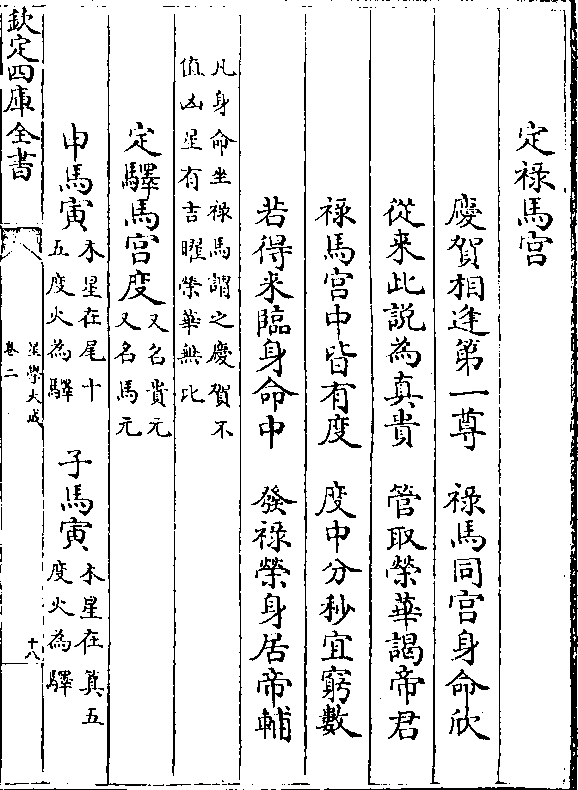 定祿馬宮
慶賀相逢第一尊　祿馬同宮身命欣
從来此説為真貴　管取榮華謁帝君
祿馬宮中皆有度　度中分秒宜窮數
若得来臨身命中　發祿榮身居帝輔
凡身命坐祿馬謂之慶賀不
值凶星有吉曜榮華無比
定驛馬宮度又名貴元
又名馬元
申馬寅木星在尾十
五度火為驛
子馬寅木星在箕五
度火為驛
欽定四庫全書
星學大成
卷二
十八